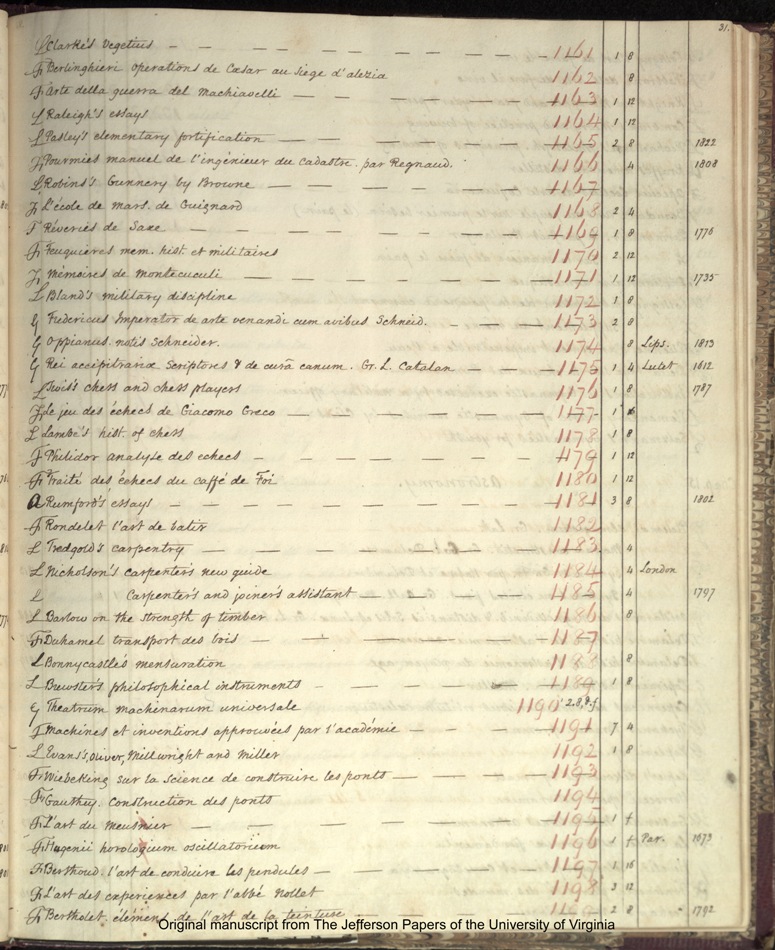 31.
L Clarke's Vegetius — — — — — — 1161 1 8
Fr Berlinghieri operations de Cæsar au siege d'alezia 1162 8
Fr Arte della guerra del Machiavelli — — — 1163 1 12
L Raleigh's essays 1164 1 12
L Pasley's elementary fortification — — — 1165 2 8 1822
Fr Pourmies manuel de l'ingénieur du Cadastre. par Regnaud. 1166 4 1808
L Robins's Gunnery by Browne — — — — 1167
Fr L'école de mars. de Guignard 1168 2 4
F Rêveries de Saxe — — — — — — 1169 1 8 1776
Fr Feuquieres mem. hist. et militaires 1170 2 12
Fr Mémoires de Montecuculi — — — — — 1171 1 12 1735
L Bland's military discipline 1172 1 8
G Fredericus Imperator de arte venandi cum avibus Schneid. — — 1173 2 8
G Oppianus. notis Schneider. 1174 8 Lips. 1813
G Rei accipitrariæ Scriptores & de curâ canum. Gr. L. Catalan — — 1175 1 4 Lutet 1612
L Twiss's chess and chess players 1176 1 8 1787
Fr Le jeu des échecs de Giacomo Greco — — — 1177 1 16
L Lambe's hist. of chess 1178 1 8
F Philidor analyse des echecs — — — — 1179 1 12
Fr Traité des échecs du Caffé de Foi 1180 1 12
a Rumford's essays — — — — — — 1181 3 8 1802
Fr Rondelet l'art de batir 1182
L Tredgold's carpentry — — — — — 1183 4
L Nicholson's carpenter's new guide 1184 4 London
L Carpenter's and joiner's assistant — — — 1185 4 1797
L Barlow on the strength of timber 1186 8
Fr Duhamel transport des bois — — — — 1187
L Bonnycastle's mensuration 1188 8
L Brewster's philosophical instruments — — — 1189 1 8
G Theatrum machinarum universale 1190
F Machines et inventions approuvées par l'académie — — 1191 7 4
L Evans's, Oliver, Millwright and Miller 1192 1 8
Fr Wiebeking sur la science de construire les ponts — — — 1193
Fr Gauthey. Construction des ponts 1194
Fr L'art du Meusnier — — — — — 1195 1 f
Fr Hugenii horologium oscillatorium 1196 1 f Par. 1673
Fr Berthoud. l'art de conduire les pendules — — — 1197 1 16
Fr L'art des experiences par l'abbé Nollet 1198 3 12
Fr Bertholet. élémens de l'art de la teinture 1199 2 8 1792
Original manuscript from The Jefferson Papers of the University of Virginia